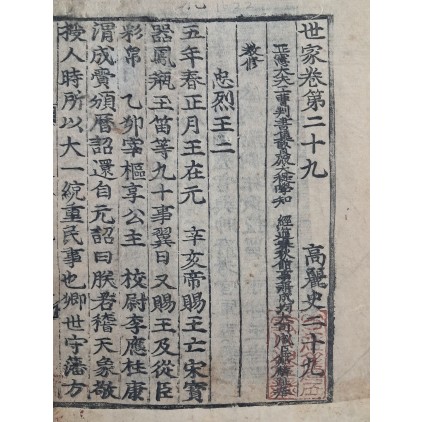 世家卷第二十九 高麗史二十九
正憲大夫工曹判書集賢殿大提學知 經筵春秋館事兼成均大司成臣鄭麟趾奉
敎修
忠烈王二
五年春正月王在元 辛亥帝賜王亡宋寶
器鳳甁王笛等九十事翼日又賜王及從臣
彩帛 乙卯宰樞享公主 校尉李應柱康
渭成賫頒曆詔還自元詔曰朕若稽天象敬
授人時所以大一統重民事也卿世守藩方